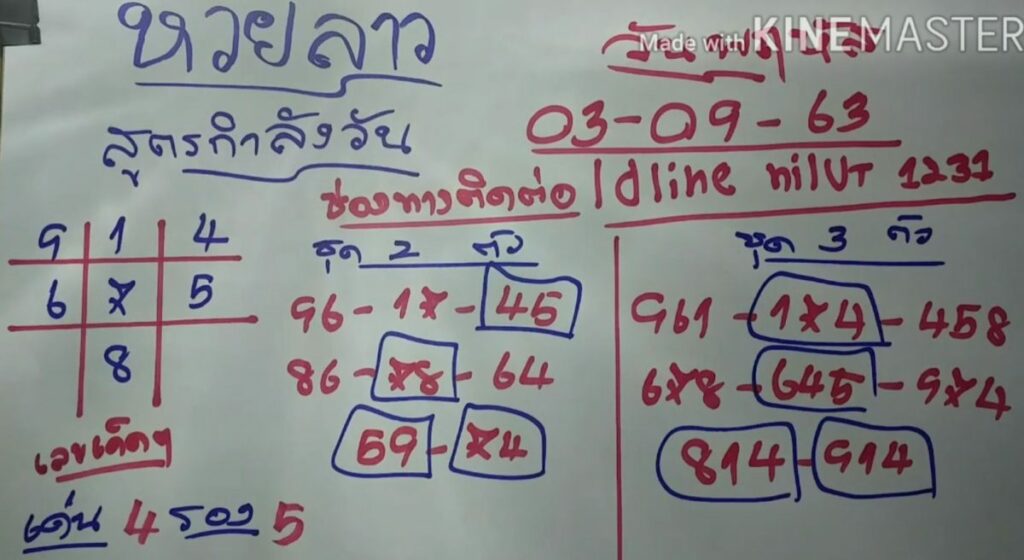 หวยลาว
Made with KINEMASTER
สูตรกำลังวัน
03-09-63
ช่องทางติดต่อ Idline nilUT 1231
9 1 4
6 7 5
8
ชุด 2 ตัว
96-17-45
86-78-64
59-74
ชุด 3 ตัว
961-174-458
678-645-974
814-914
เลขเด็ดๆ
เด่น 4 รอง 5